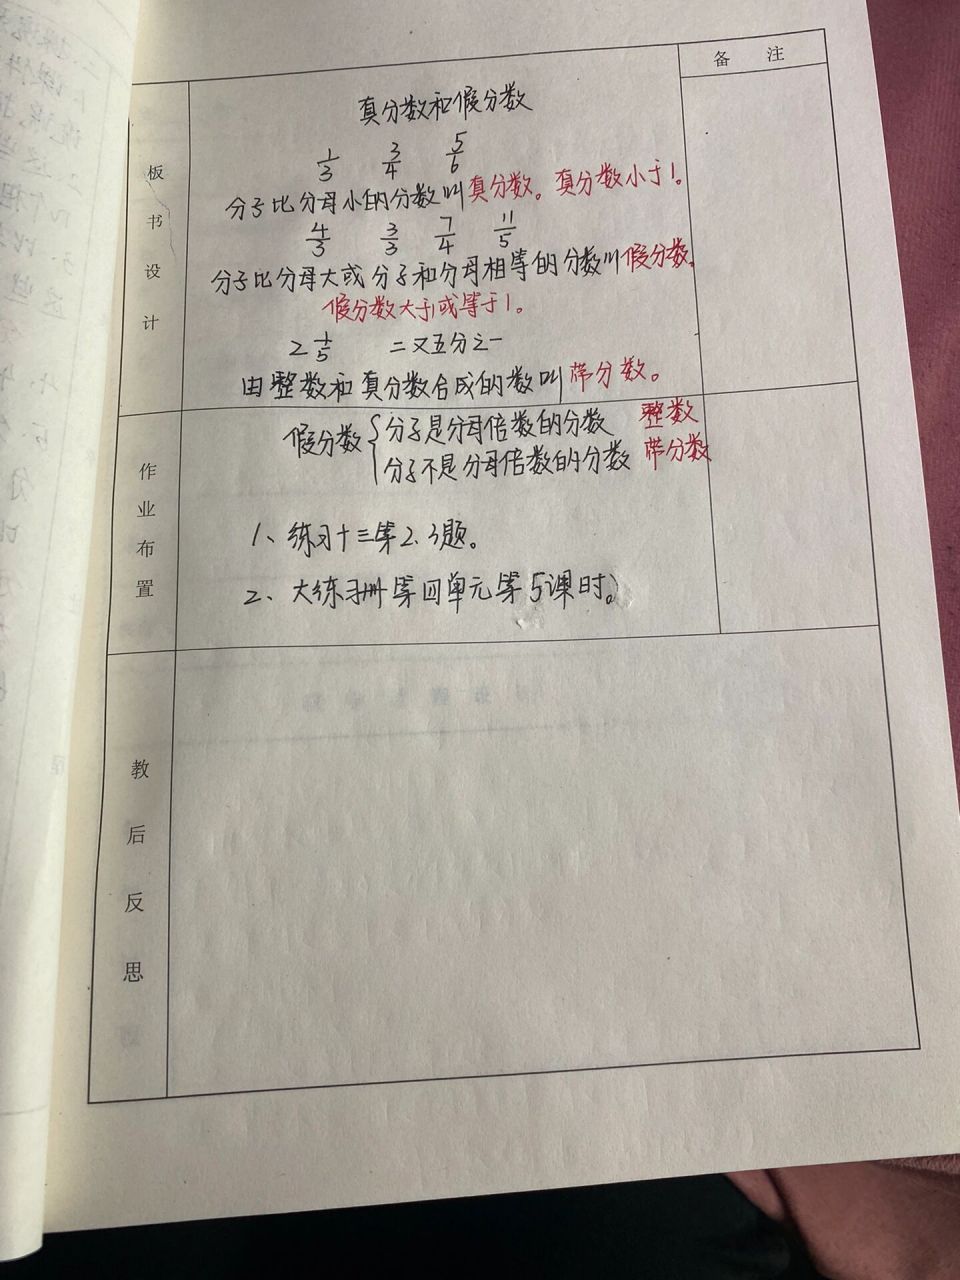 备 注
板书设计
真分数和假分数
1/3 3/4 5/6
分子比分母小的分数叫真分数。真分数小于1。
4/3 3/3 7/4 11/5
分子比分母大或分子和分母相等的分数叫假分数。
假分数大于或等于1。
2 1/5 二又五分之一
由整数和真分数合成的数叫带分数。
作业布置
假分数{分子是分母倍数的分数 整数
分子不是分母倍数的分数 带分数
1、练习十三第2、3题。
2、大练习册第四单元第5课时。
教后反思